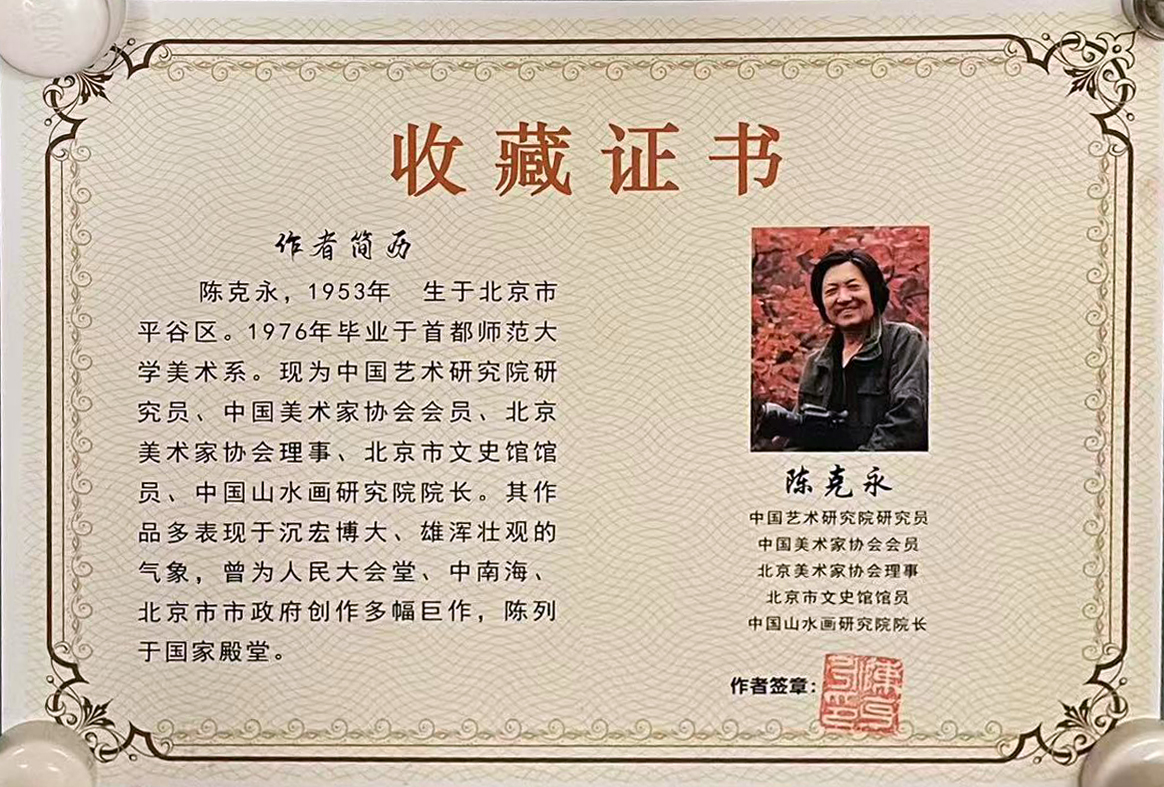 收藏证书
作者简历
陈克永，1953年 生于北京市
平谷区。1976年毕业于首都师范大
学美术系。现为中国艺术研究院研
究员、中国美术家协会会员、北京
美术家协会理事、北京市文史馆馆
员、中国山水画研究院院长。其作
品多表现于沉宏博大、雄浑壮观的
气象，曾为人民大会堂、中南海、
北京市市政府创作多幅巨作，陈列
于国家殿堂。
陈克永
中国艺术研究院研究员
中国美术家协会会员
北京美术家协会理事
北京市文史馆馆员
中国山水画研究院院长
作者签章：